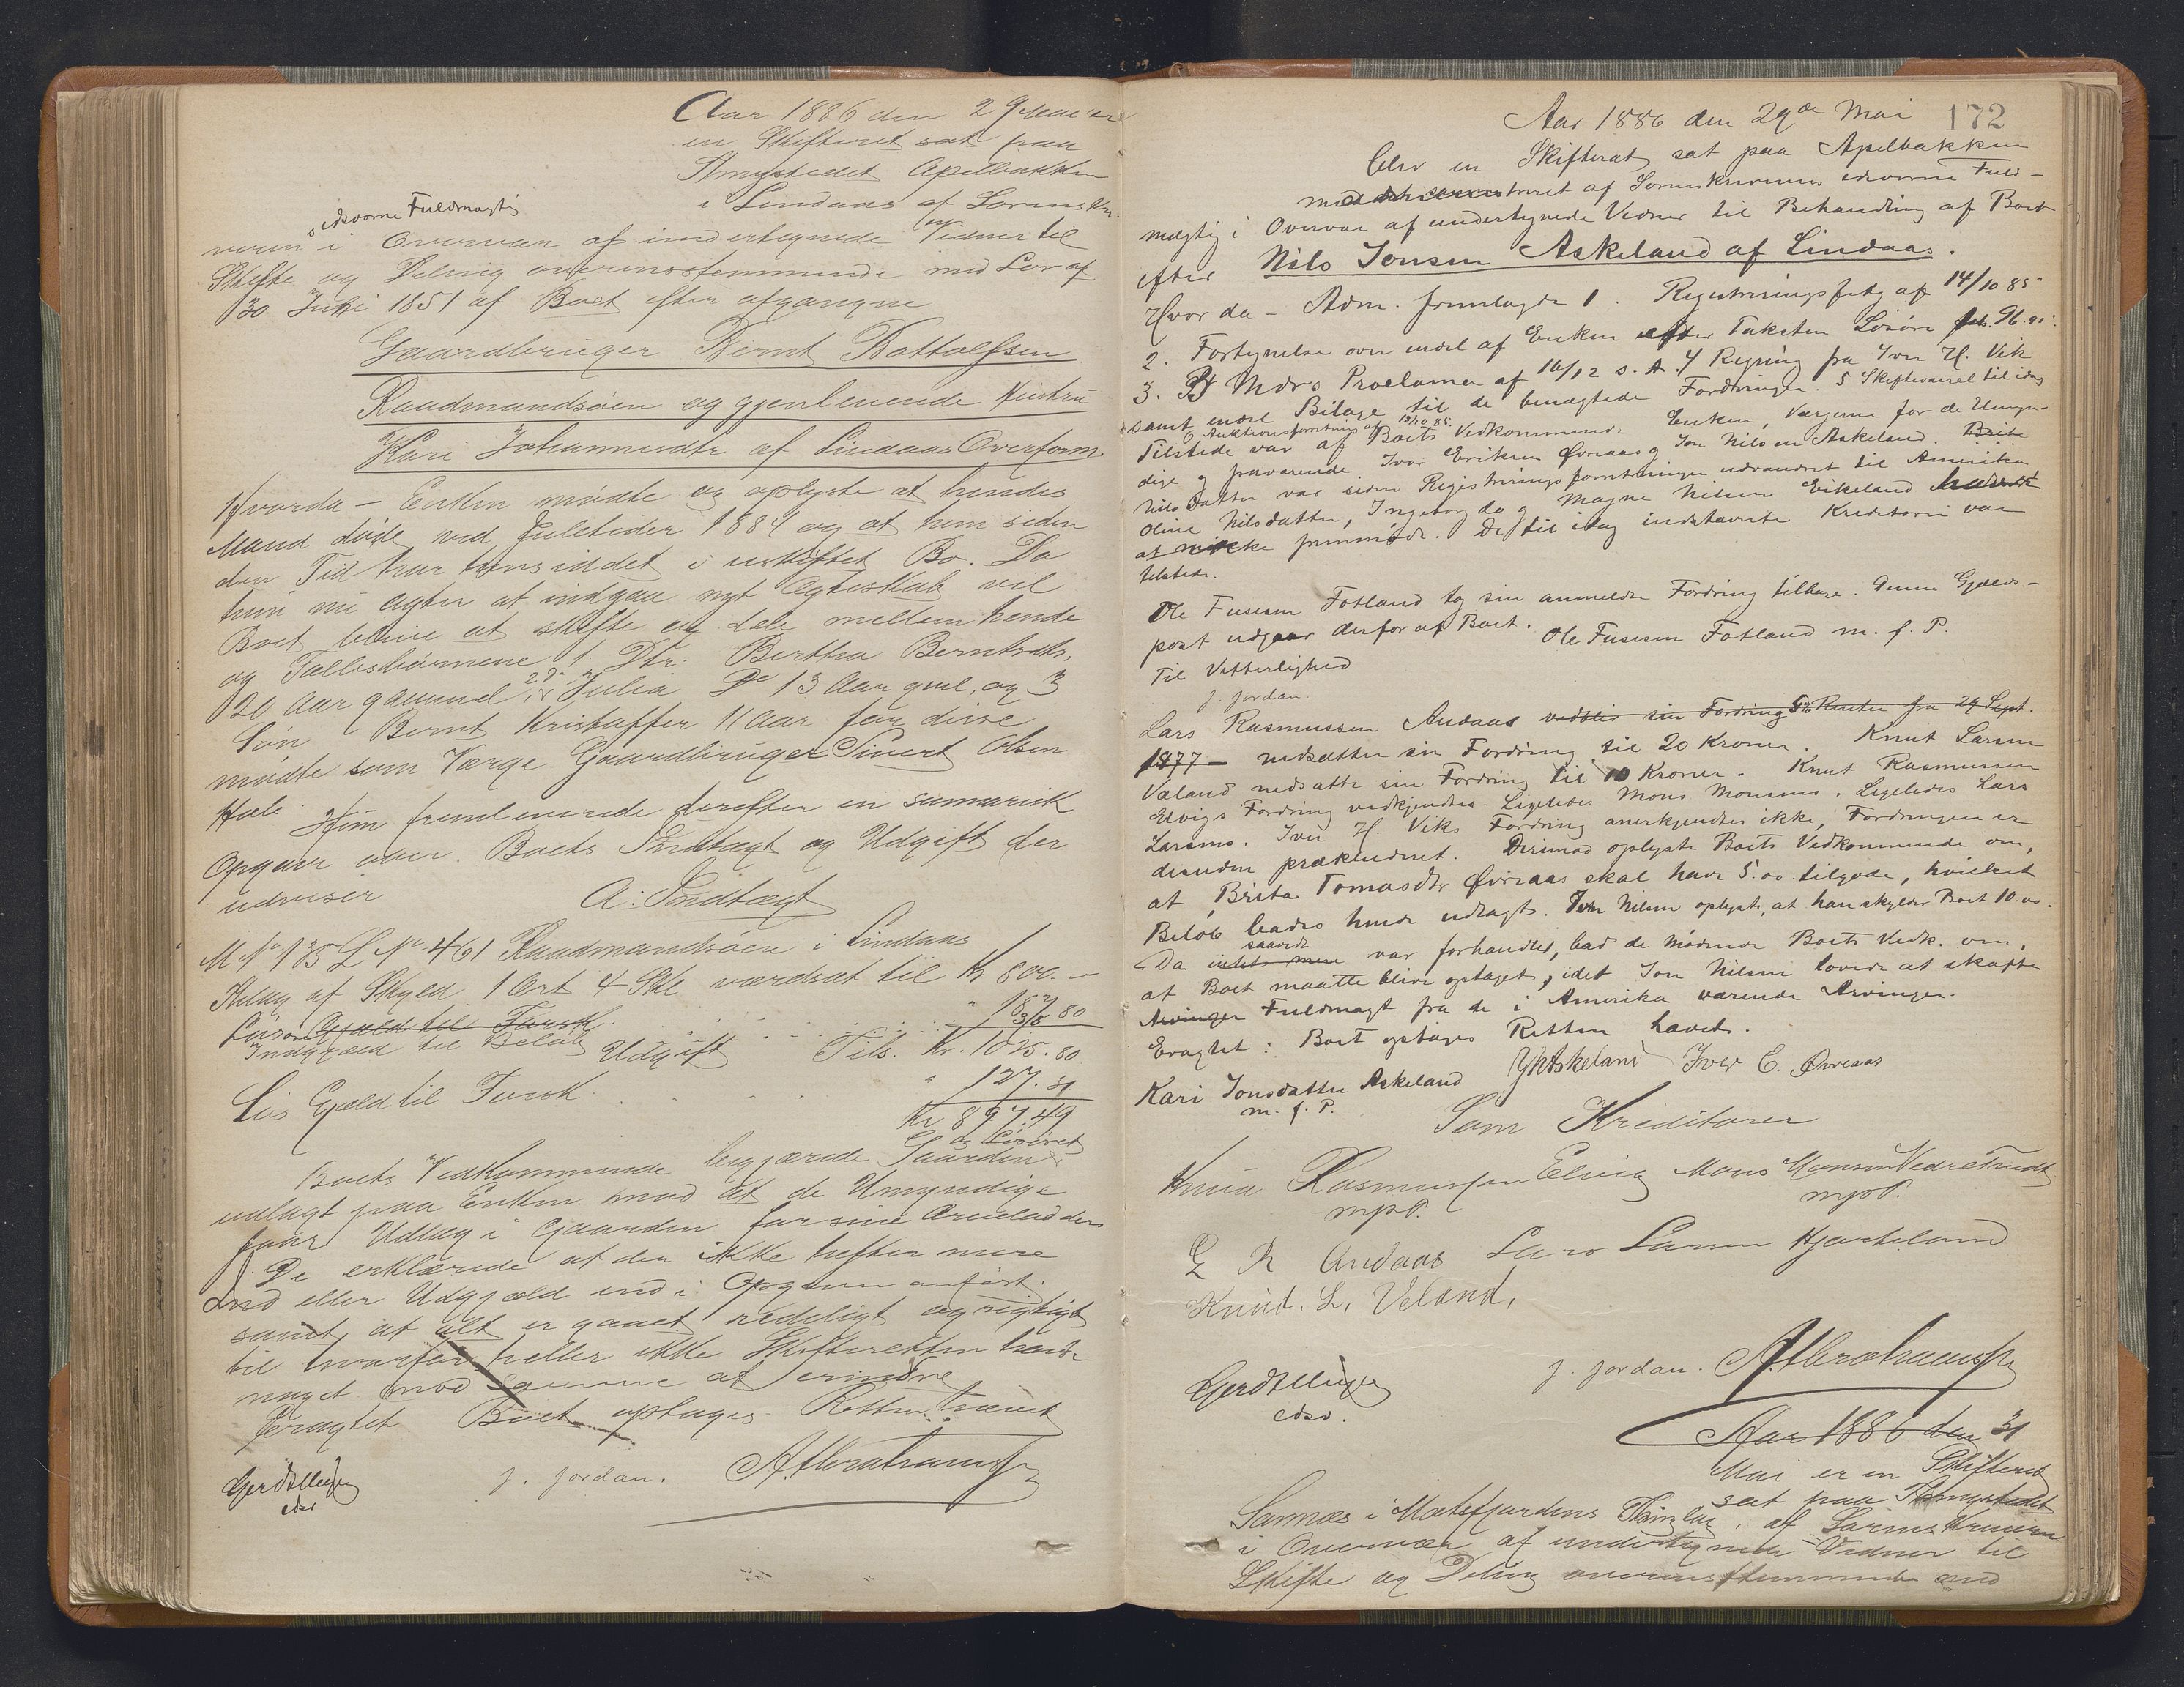 Aar 1886 den 29de Mai er
en Skifteret sat paa
Thingstedet Apelbakken
i Lindaas af Sorenskri-
edsvorne Fuldmægtig
veren s i Overvær af undertegnede Vidner til
Skifte og Deling overensstemmende med Lov af
30 Juli 1851 af Boet efter afgangne
Gaardbruger Bernt Bottolfsen
Raadmandsøen og gjenlevende Hustru
Kari Johannesdtr af Lindaas Overform.
Hvorda – Enken mødte og oplyste at hendes
Mand døde ved Juletider 1884 og at hun siden
den Tid har hensiddet i uskiftet Bo. Da
hun nu agter at indgaa nyt Ægteskab vil
Boet blive at skifte og dele mellem hende
og Fællesbørnene 1 Dtr. Bertha Berntsdtr,
20 Aar gammel, 2 Julia Do 13 Aar gml. og 3
Søn Bernt Kristoffer 11 Aar for disse
mødte som Værge Gaardbruger Sivert Olsen
Hun fremleverede derefter en sumarisk
Opgave over Boets Indtægt og Udgift der
udviser
A: Indtægt
M No 135 L No 461 Raadmandsøen i Lindaas
af Skyld 1 Ort 4 Skl værdsat til Kr 800.–
Løsøre Gjæld til Forsk.
Indgjæld til Beløb
Udgift Tils. Kr. 1025.80
Lis Gjæld til Forsk. " 127.31
Kr 897.49
og Løsøret
Boets Vedkommende begjærede Gaarden
udlagt paa Enken mod at de Umyndige
faar Udlæg i Gaarden for sine Arvelodder
De erklærede at der ikke hefter mere
Ind eller Udgjæld end i Opgaven anført.
samt at alt er gaaet redeligt og rigtigt
til hvorfor heller ikke Skifteretten havde
noget mod samme at erindre
Eragtet Boet optages Retten hævet
J. Jordan. A. Abrahamsen
edsv
Aar 1886 den 29de Mai 172
blev en Skifteret sat paa Apelbakken
administreret af Sorenskriverens edsvorne Fuld-
mægtig i Overvær af undertegnede Vidner til Behandling af Boet
efter Nils Jonsen Askeland af Lindaas.
Hvor da – Adm. fremlagde 1. Registreringsfortg af 14/10 85
2. Fortegnelse over endel af Enken efter Taksten Løsøre
3. Mdrs Proclama af 16/12 s. A. 4 Regning fra Iver H. Vik
samt endel Bilage til de benægtede Fordringer. 5 Skiftevarsel til idag
6 Auktionsforretning af 19/10 85.
Tilstede var af Boets Vedkommende Enken, Værgerne for de Umyn-
dige og fraværende Iver Eriksen Øvreaas og Jon Nilsen Askeland. Brite
Nilsdatter var siden Registreringsforretningen udvandret til Amerika
Oline Nilsdatter, Ingeborg do og Magne Nilsen Eikeland
at ikke fremmøde. De til idag indstævnte Kreditorer var
tilstede.
Ole Fusesen Fotland tog sin anmeldte Fordring tilbage. Denne Gjælds-
post udgaar derfor af Boet. Ole Fusesen Fotland m. f. P.
Til Vitterlighed
J. Jordan.
Lars Rasmussen Andaas vedblev sin Fordring 5% Renter fra 29 Sept.
1877 – nedsatter sin Fordring til 20 Kroner. Knut Larsen
Væland nedsatte sin Fordring til 10 Kroner. Knut Rasmussen
Elvigs Fordring vedkjendtes. Ligeledes Mons Monsens. Ligeledes Lars
Larsens. Iver H. Viks Fordring anerkjendtes ikke, Fordringen er
desuden prækluderet. Derimod oplyste Boets Vedkommende om,
at Brita Tomasdtr Øvreaas skal have 5.00 tilgode, hvilket
Beløb bades hende udlagt. Iver Nilsen oplyste, at han skylder Boet 10.00.
saavidt
Da intet mere var forhandlet, bad de mødende Boets Vedk. om,
at Boet maatte blive optaget, idet Jon Nilsen lovede at skaffe
Arvinger Fuldmagt fra de i Amerika værende Arvinger.
Eragtet: Boet optages Retten hævet.
Kari Jonsdatter Askeland Iver E. Øvreaas
m. f. P.
Som Kreditorer
Knud Rasmussen Elvig Mons Monsen
mpP. mpP.
L R Andaas Lars Larsen Hjerteland
Knud. L, Veland,
J. Jordan. A. Abrahamsen
edsv.
Aar 1886 den 31
Mai er en Skifteret
sat paa Thingstedet
i Matsfjordens Thinglag, af Sorenskriveren
i Overvær af undertegnede Vidner til
Skifte og Deling overensstemmende med